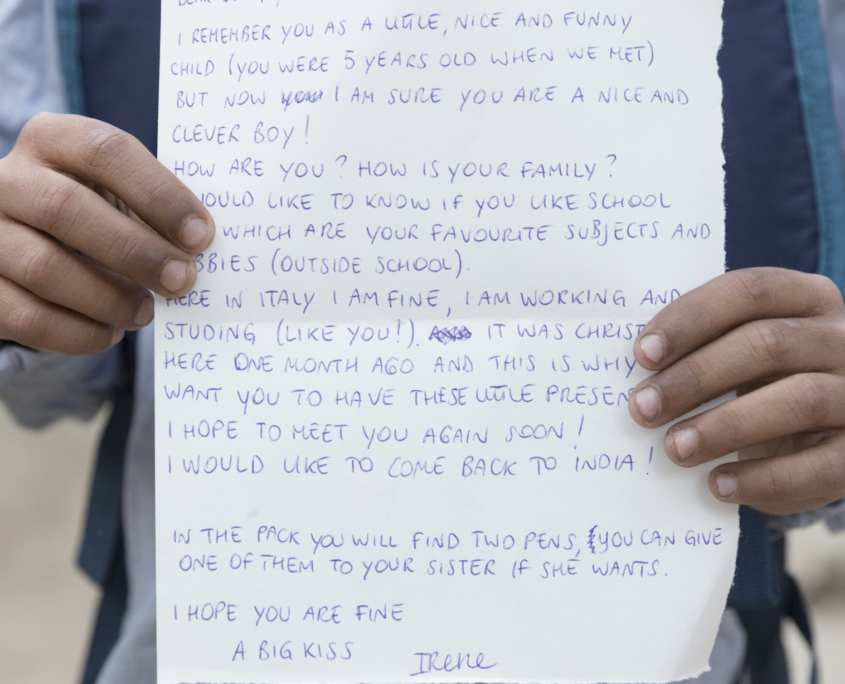 I REMEMBER YOU AS A LITTLE, NICE AND FUNNY
CHILD (YOU WERE 5 YEARS OLD WHEN WE MET)
BUT NOW I AM SURE YOU ARE A NICE AND
CLEVER BOY!
HOW ARE YOU? HOW IS YOUR FAMILY?
WOULD LIKE TO KNOW IF YOU LIKE SCHOOL
WHICH ARE YOUR FAVOURITE SUBJECTS AND
BBIES (OUTSIDE SCHOOL).
HERE IN ITALY I AM FINE, I AM WORKING AND
STUDING (LIKE YOU!). IT WAS CHRIST
HERE ONE MONTH AGO AND THIS IS WHY
WANT YOU TO HAVE THESE LITTLE PRESEN
I HOPE TO MEET YOU AGAIN SOON!
I WOULD LIKE TO COME BACK TO INDIA!
IN THE PACK YOU WILL FIND TWO PENS, YOU CAN GIVE
ONE OF THEM TO YOUR SISTER IF SHE WANTS.
I HOPE YOU ARE FINE
A BIG KISS Irene